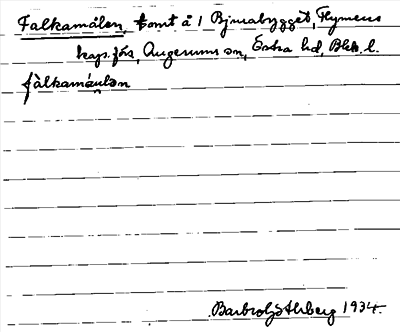 Falkamålen, tomt å 1 Björsabygget, Flymens
kaps. förs, Augerums sn, Östra hd, Blek. l.
fàlkamáulən
Barbro Götherberg 1934.